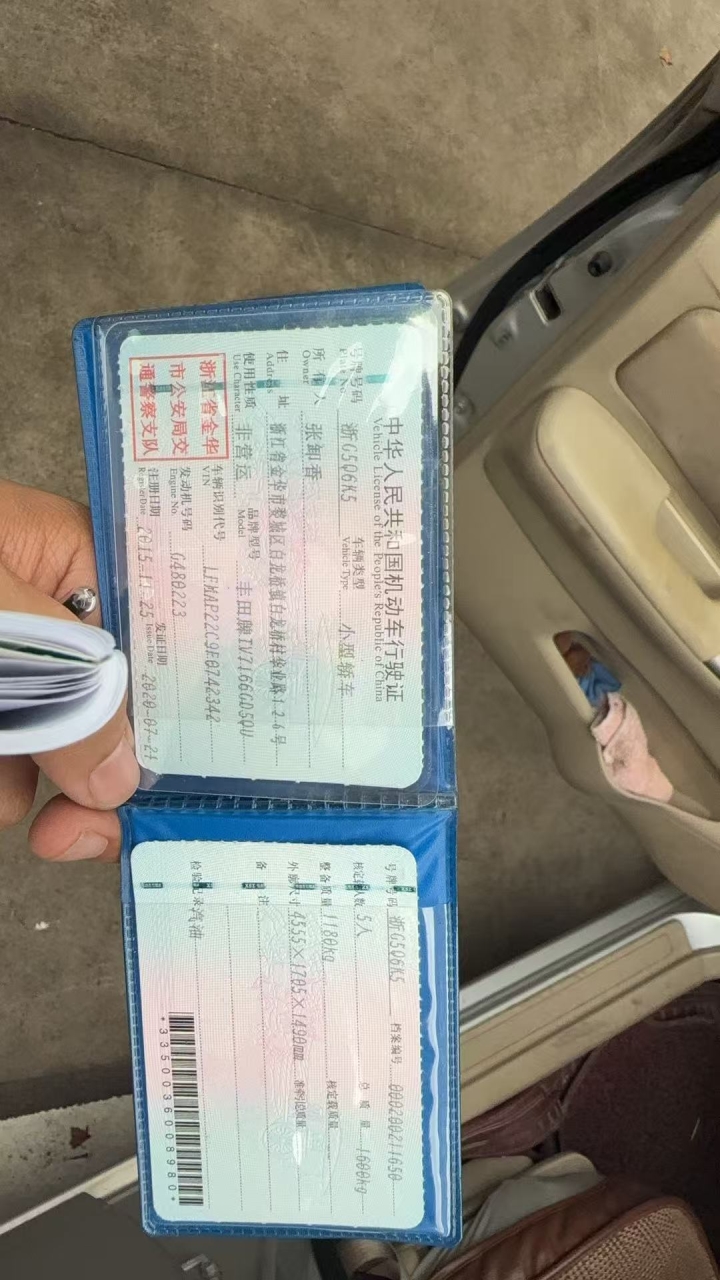 中华人民共和国机动车行驶证
Vehicle License of the People's Republic of China
号牌号码 浙G5Q6K5 车辆类型 小型轿车
Plate No. Vehicle Type
所有人 张卸香
Owner
住址 浙江省金华市婺城区白龙桥镇白龙桥村华业路126号
Address
使用性质 非营运 品牌型号 丰田牌TV7166GD5QU
Use Character Model
浙江省金华
市公安局交
通警察支队
车辆识别代号 LFMAP22C9F0742342
VIN
发动机号码 G480223
Engine No.
注册日期 2015-11-25 发证日期 2020-07-21
Register Date Issue Date
号牌号码 浙G5Q6K5 档案编号 000200211650
核定载人数 5人 总质量 1600kg
整备质量 1180kg 核定载质量
外廓尺寸 4555×1705×1490mm 准牵引总质量
备注
检验记录 汽油
*3350036008980*